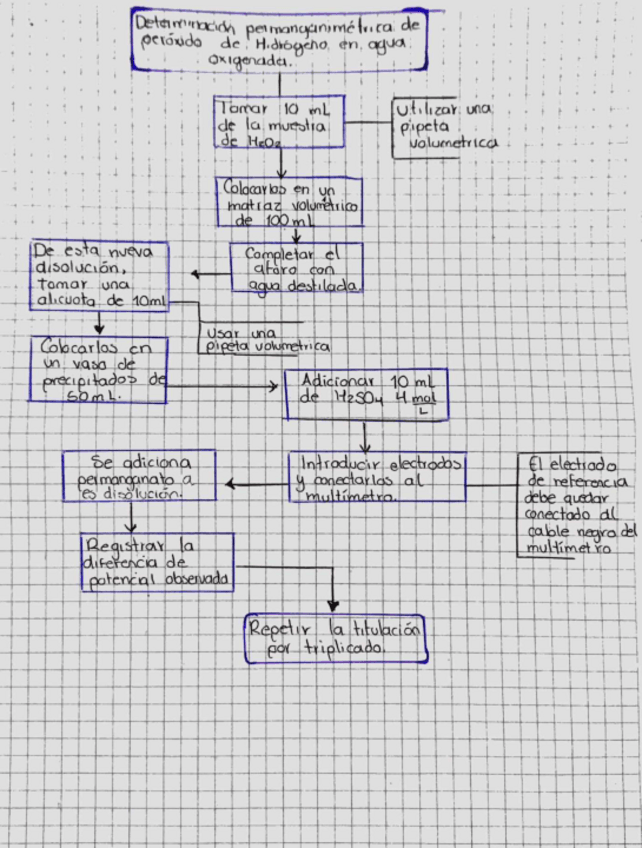 Determinación permanganimétrica de
peróxido de Hidrógeno en agua
oxigenada.
Tomar 10 mL
de la muestra
de H2O2
Utilizar una
pipeta
volumetrica
Colocarlos en un
matraz volumétrico
de 100mL
Completar el
aforo con
agua destilada
De esta nueva
disolución,
tomar una
alicuota de 10ml
Usar una
pipeta volumetrica
Colocarlos en
un vaso de
precipitados de
50mL.
Adicionar 10 mL
de H2SO4 4 mol
L
Introducir electrodos
y conectarlos al
multímetro.
El electrodo
de referencia
debe quedar
conectado al
cable negro del
multímetro
Se adiciona
permanganato a
es disolución.
Registrar la
diferencia de
potencial observada
Repetir la titulación
por triplicado.